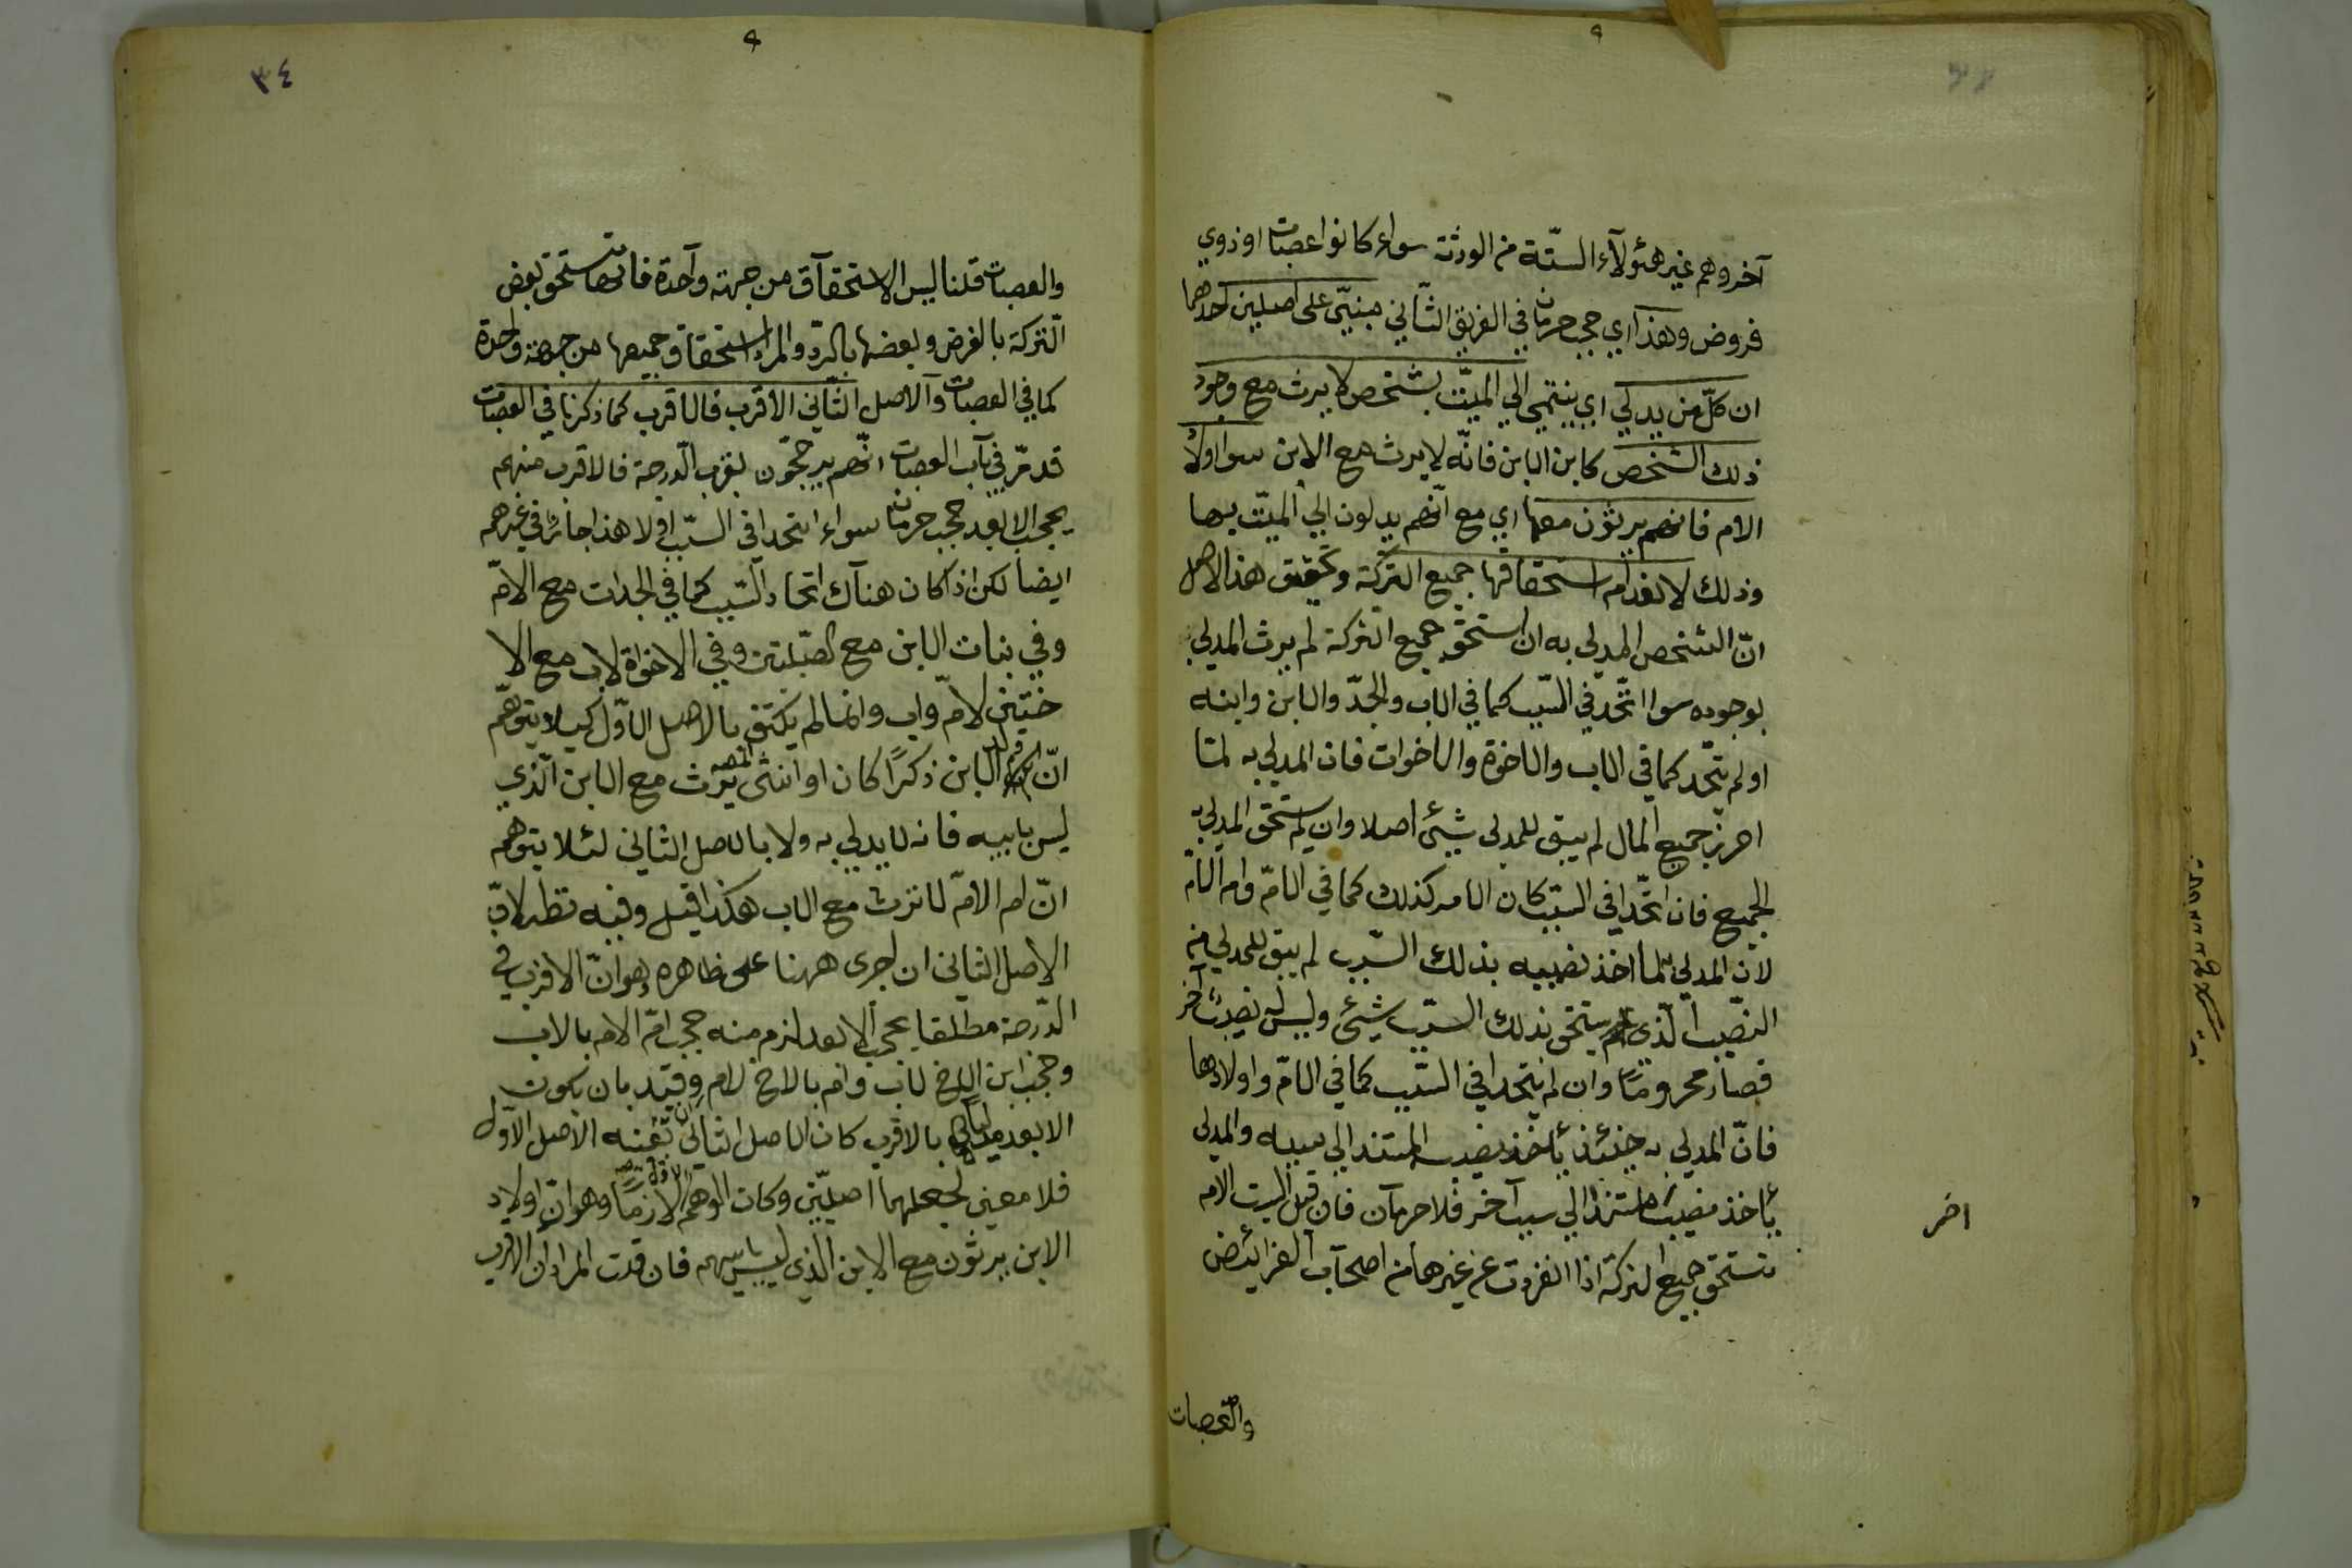 آخر وهم غير هئولآء الستّة من الورثة سواء كانوا عصبات او ذوي
فروض وهذا اي حجب حرمان في الفريق الثّاني مبنيّ على اصلين احدهما
ان كلّ من يدلي اي ينتمي الي الميّت بشخص لا يرث مع وجود
ذلك الشخص كابن الابن فانّه لا يرث مع الابن سوا اولاد
الام فانهم يرثون معها اي مع انّهم يدلون الي الميّت بها
وذلك لانعدام استحقاقها جميع التركة وتحقيق هذا الاصل
انّ الشخص المدلى به ان استحق جميع التركة لم يرث المدلي
بوجوده سوا اتّحد في السّبب كما في الاب والجدّ والابن وابنه
او لم يتّحد كما في الاب والاخوة والاخوات فان المدلي به لمّا
احرز جميع المال لم يبق للمدلي شيئ اصلا وان لم يستحق المدلي به
الجميع فان اتّحدا في السّبب كان الامر كذلك كما في الامّ وام الامّ
لانّ المدلي به لما اخذ نصيبه بذلك السّبب لم يبق للمدلي من
النصّيب الّذي يستحق بذلك السّبب شيئ وليس له نصيب آخر
فصار محروما وان لم يتّحدا في السّبب كما في الامّ واولادها
فانّ المدلي به حينئذ يأخذ نصيبه المستند الي سببه والمدلي
يأخذ نصيبا مستندا الي سبب آخر فلا حرمان فان قيل اليست الام
تستحق جميع التركة اذا انفردت عن غيرها من اصحاب الفرائض
اخر
والعصبات
٣٤
والعصبات قلنا ليس الاستحقاق من جهة واحدة فانها تستحق بعض
التركة بالفرض وبعضها بالردّ والمراد استحقاق جميعها من جهة واحدة
كما في العصبات والاصل الثّاني الاقرب فالاقرب كما ذكرنا في العصبات
قد مرّ في باب العصبات انّهم يرجحّون بقرب الدّرجة فالاقرب منهم
يحجب الابعد حجب حرمان سواء اتحدا في السّبب او لا هذا جائز في غيرهم
ايضا لكن اذا كان هناك اتحاد السّبب كما في الجدات مع الامّ
وفي بنات الابن مع الصّلبتين وفي الاخوة لاب مع الا
ختين لامّ واب وانما لم يكتف بالاصل الاوّل كيلا يتوهّم
انّ ولد الابن ذكرًا كان او انثى يرث مع الابن الّذي
ليس بابيه فانه لا يدلي به ولا بالاصل الثاني لئلا يتوهم
انّ ام الامّ لا ترث مع الاب هكذا قيل وفيه نظر لانّ
الاصل الثاني ان اجرى ههنا على ظاهره وهو انّ الاقرب في
الدّرجة مطلقا يحجب الابعد لزم منه حجب امّ الام بالاب
وحجب ابن الاخ لاب وام بالاخ لام وقيّد بان يكون
الابعد مدليا بالاقرب كان الاصل الثاني بعينه الاصل الاوّل
فلا معنى لجعلهما اصليّن وكان الوهم الاوّل لازما وهو انّ اولاد
الابن يرثون مع الابن الذي ليس بابيهم فان قلت المراد ان الاقرب